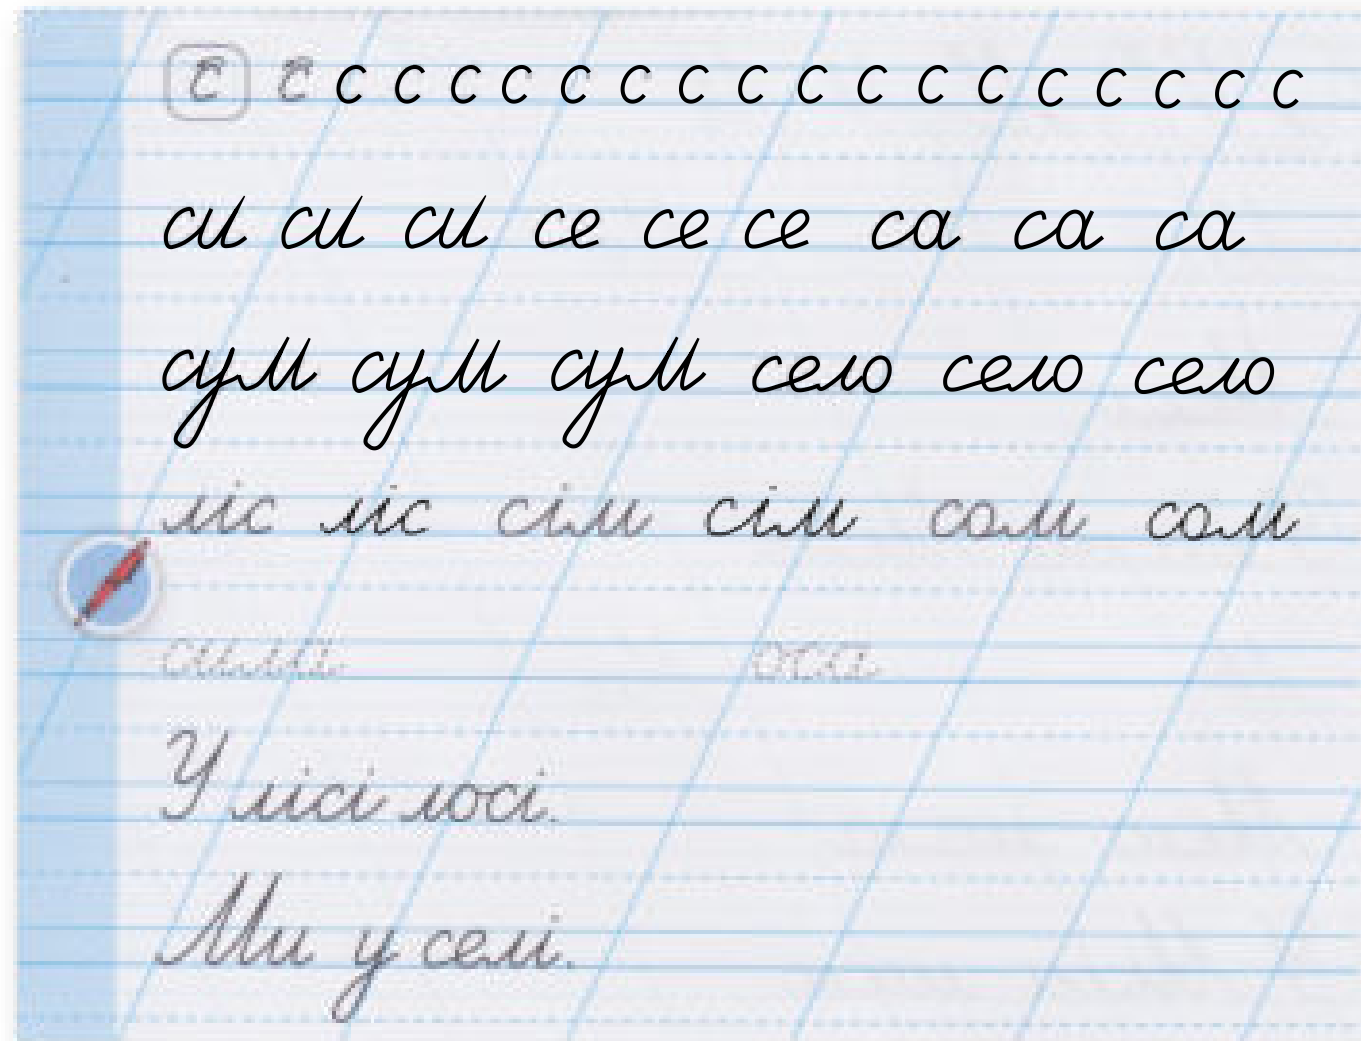 с с с с с с с с с с с с с с с с с с с
си си си се се се са са са
сум сум сум село село село
ліс ліс сім сім сом сом
сама оса
У лісі лосі.
Ми у селі.